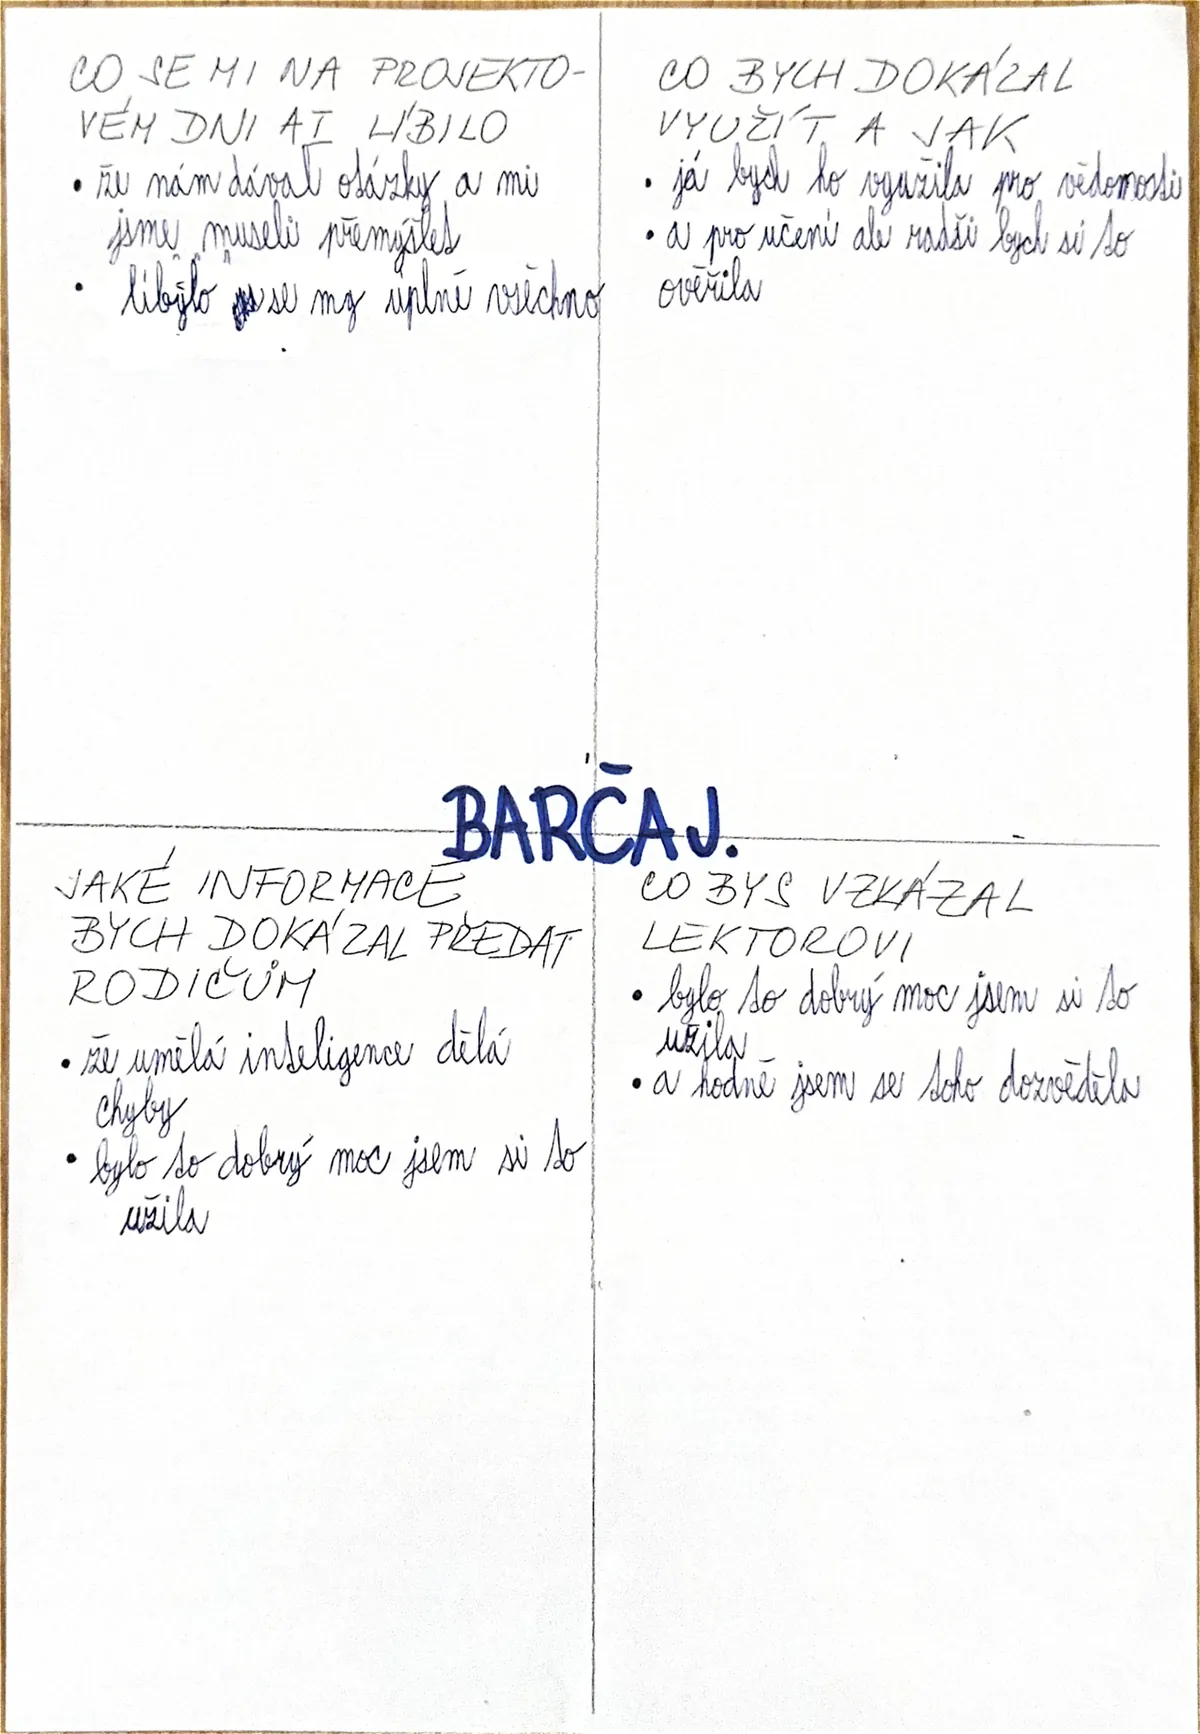 CO SE MI NA PROJEKTO-
VÉM DNI AI LÍBILO
• že nám dával otázky a mi
jsme museli přemýšlet
• líbýlo se my úplně vśechno
CO BYCH DOKÁZAL
VYUŽÍT A JAK
• já bych ho využila pro vědomosti
• a pro učení ale radši bych si to
ověřila
BARČA J.
JAKÉ INFORMACE
BYCH DOKÁZAL PŘEDAT
RODIČŮM
• že umělá inteligence dělá
chyby
• bylo to dobrý moc jsem si to
užila
CO BYS VZKÁZAL
LEKTOROVI
• bylo to dobrý moc jsem si to
užila
• a hodně jsem se toho dozvěděla